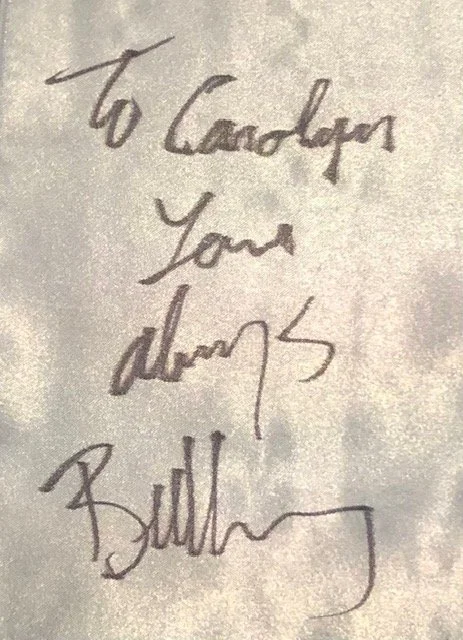 To Carolyn
Yours
always
Billy